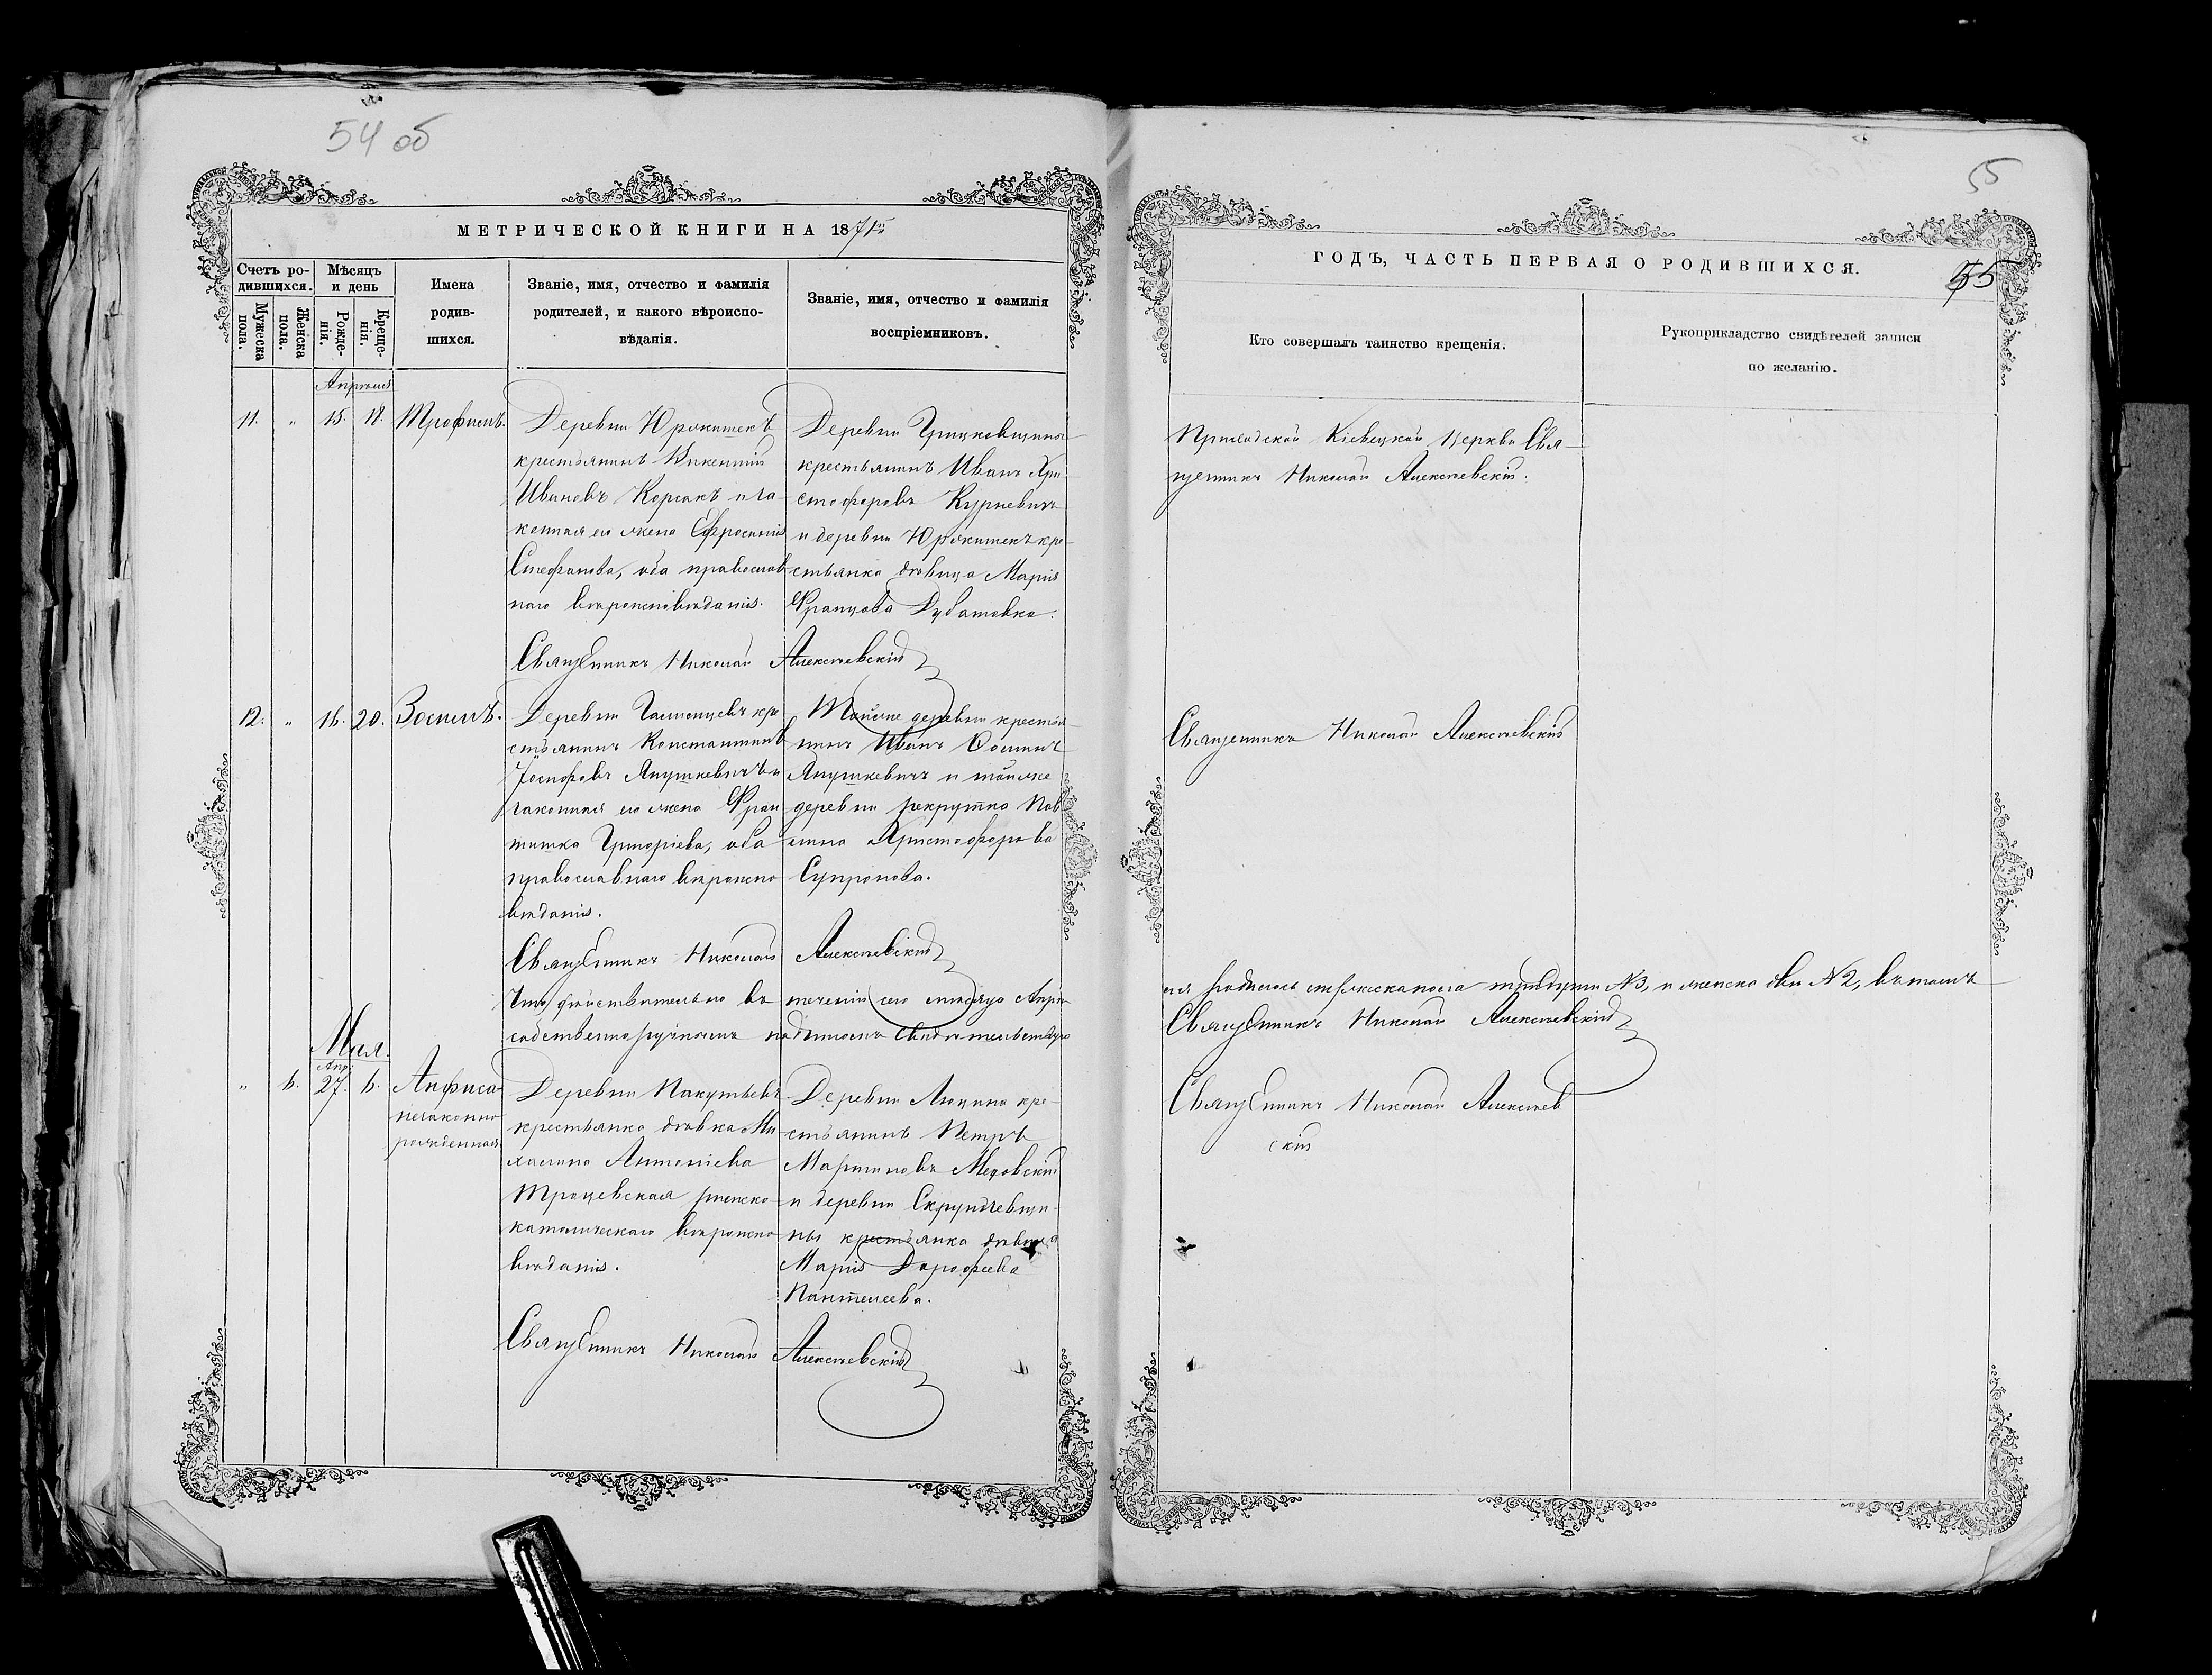 54 об
55
МЕТРИЧЕСКОЙ КНИГИ НА 1871й
Счетъ ро-
дившихся.
Мужеска
пола.
Женска
пола.
Мѣсяцъ
и день
Рожде-
нія.
Креще-
нія.
Имена
родив-
шихся.
Званіе, имя, отчество и фамилія
родителей, и какого вѣроиспо-
вѣданія.
Званіе, имя, отчество и фамилія
воспріемниковъ.
Апрѣля
11. " 15. 18. Трофимъ.
Деревни
крестьянинъ Викентій
Ивановъ Корсакъ и за-
конная его жена Ефросинія
Стефанова, оба православ-
наго вѣроисповѣданія.
Деревни Грицковщины
крестьянинъ Иванъ Хри-
стофоровъ Курневичъ
и деревни кре-
стьянка дѣвица Марія
Францова Дубатовка.
Священникъ Николай Алексѣевскій
12. " 16. 20. Зосимъ.
Деревни кре-
стьянинъ Константинъ
Іосифовъ Янушкевичъ и
законная его жена Фран-
тишка Григоріева, оба
православнаго вѣроиспо-
вѣданія.
Тойже деревни крестья-
нинъ Иванъ Янушкевичъ и тойже
деревни рекрутка Пав-
лина Христофорова
Супронова.
Священникъ Николай Алексѣевскій
Что дѣйствительно въ теченіи сего мѣсяца Апрѣ-
собственноручнымъ подписомъ свидѣтельствую
Мая.
Апр.
" 6. 27. 6. Анфиса
незаконно-
рожденная
Деревни
крестьянка дѣвка Ми-
халина Антоніева
Троцевская римско-
католическаго вѣроиспо-
вѣданія.
Деревни Люцина кре-
стьянинъ Петръ
Мартиновъ
и деревни Скрундзевщи-
ны крестьянка дѣвица
Марія Дорофеева
Пантелеева.
Священникъ Николай Алексѣевскій
55
ГОДЪ, ЧАСТЬ ПЕРВАЯ О РОДИВШИХСЯ.
Кто совершалъ таинство крещенія.
Рукоприкладство свидѣтелей записи
по желанію.
Приходской Кіевецкой Церкви Свя-
щенникъ Николай Алексѣевскій.
Священникъ Николай Алексѣевскій
ля родилось мужеска пола три № 3, и женска два № 2, въ томъ
Священникъ Николай Алексѣевскій
Священникъ Николай Алексѣев
скій